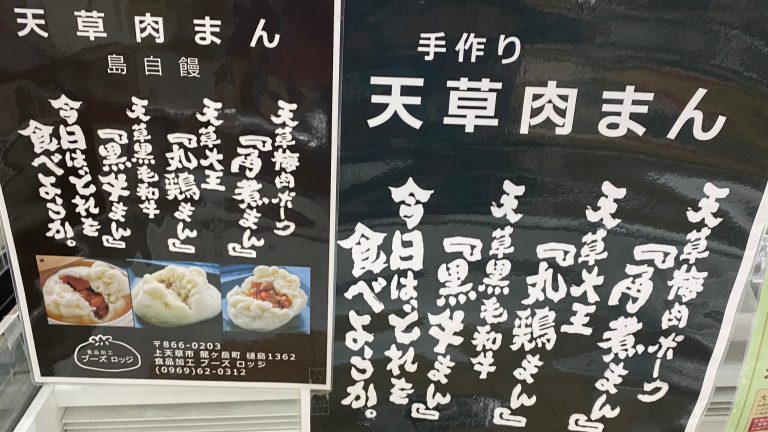 天草肉まん
島自饅
天草梅肉ポーク
『角煮まん』
天草大王
『丸鶏まん』
天草黒毛和牛
『黒牛まん』
今日は、どれを
食べようか。
食品加工
ブーズ ロッジ
〒866-0203
上天草市 龍ヶ岳町 樋島1362
食品加工 ブーズ ロッジ
(0969)62-0312
手作り
天草肉まん
天草梅肉ポーク
『角煮まん』
天草大王
『丸鶏まん』
天草黒毛和牛
『黒牛まん』
今日は、どれを
食べようか。